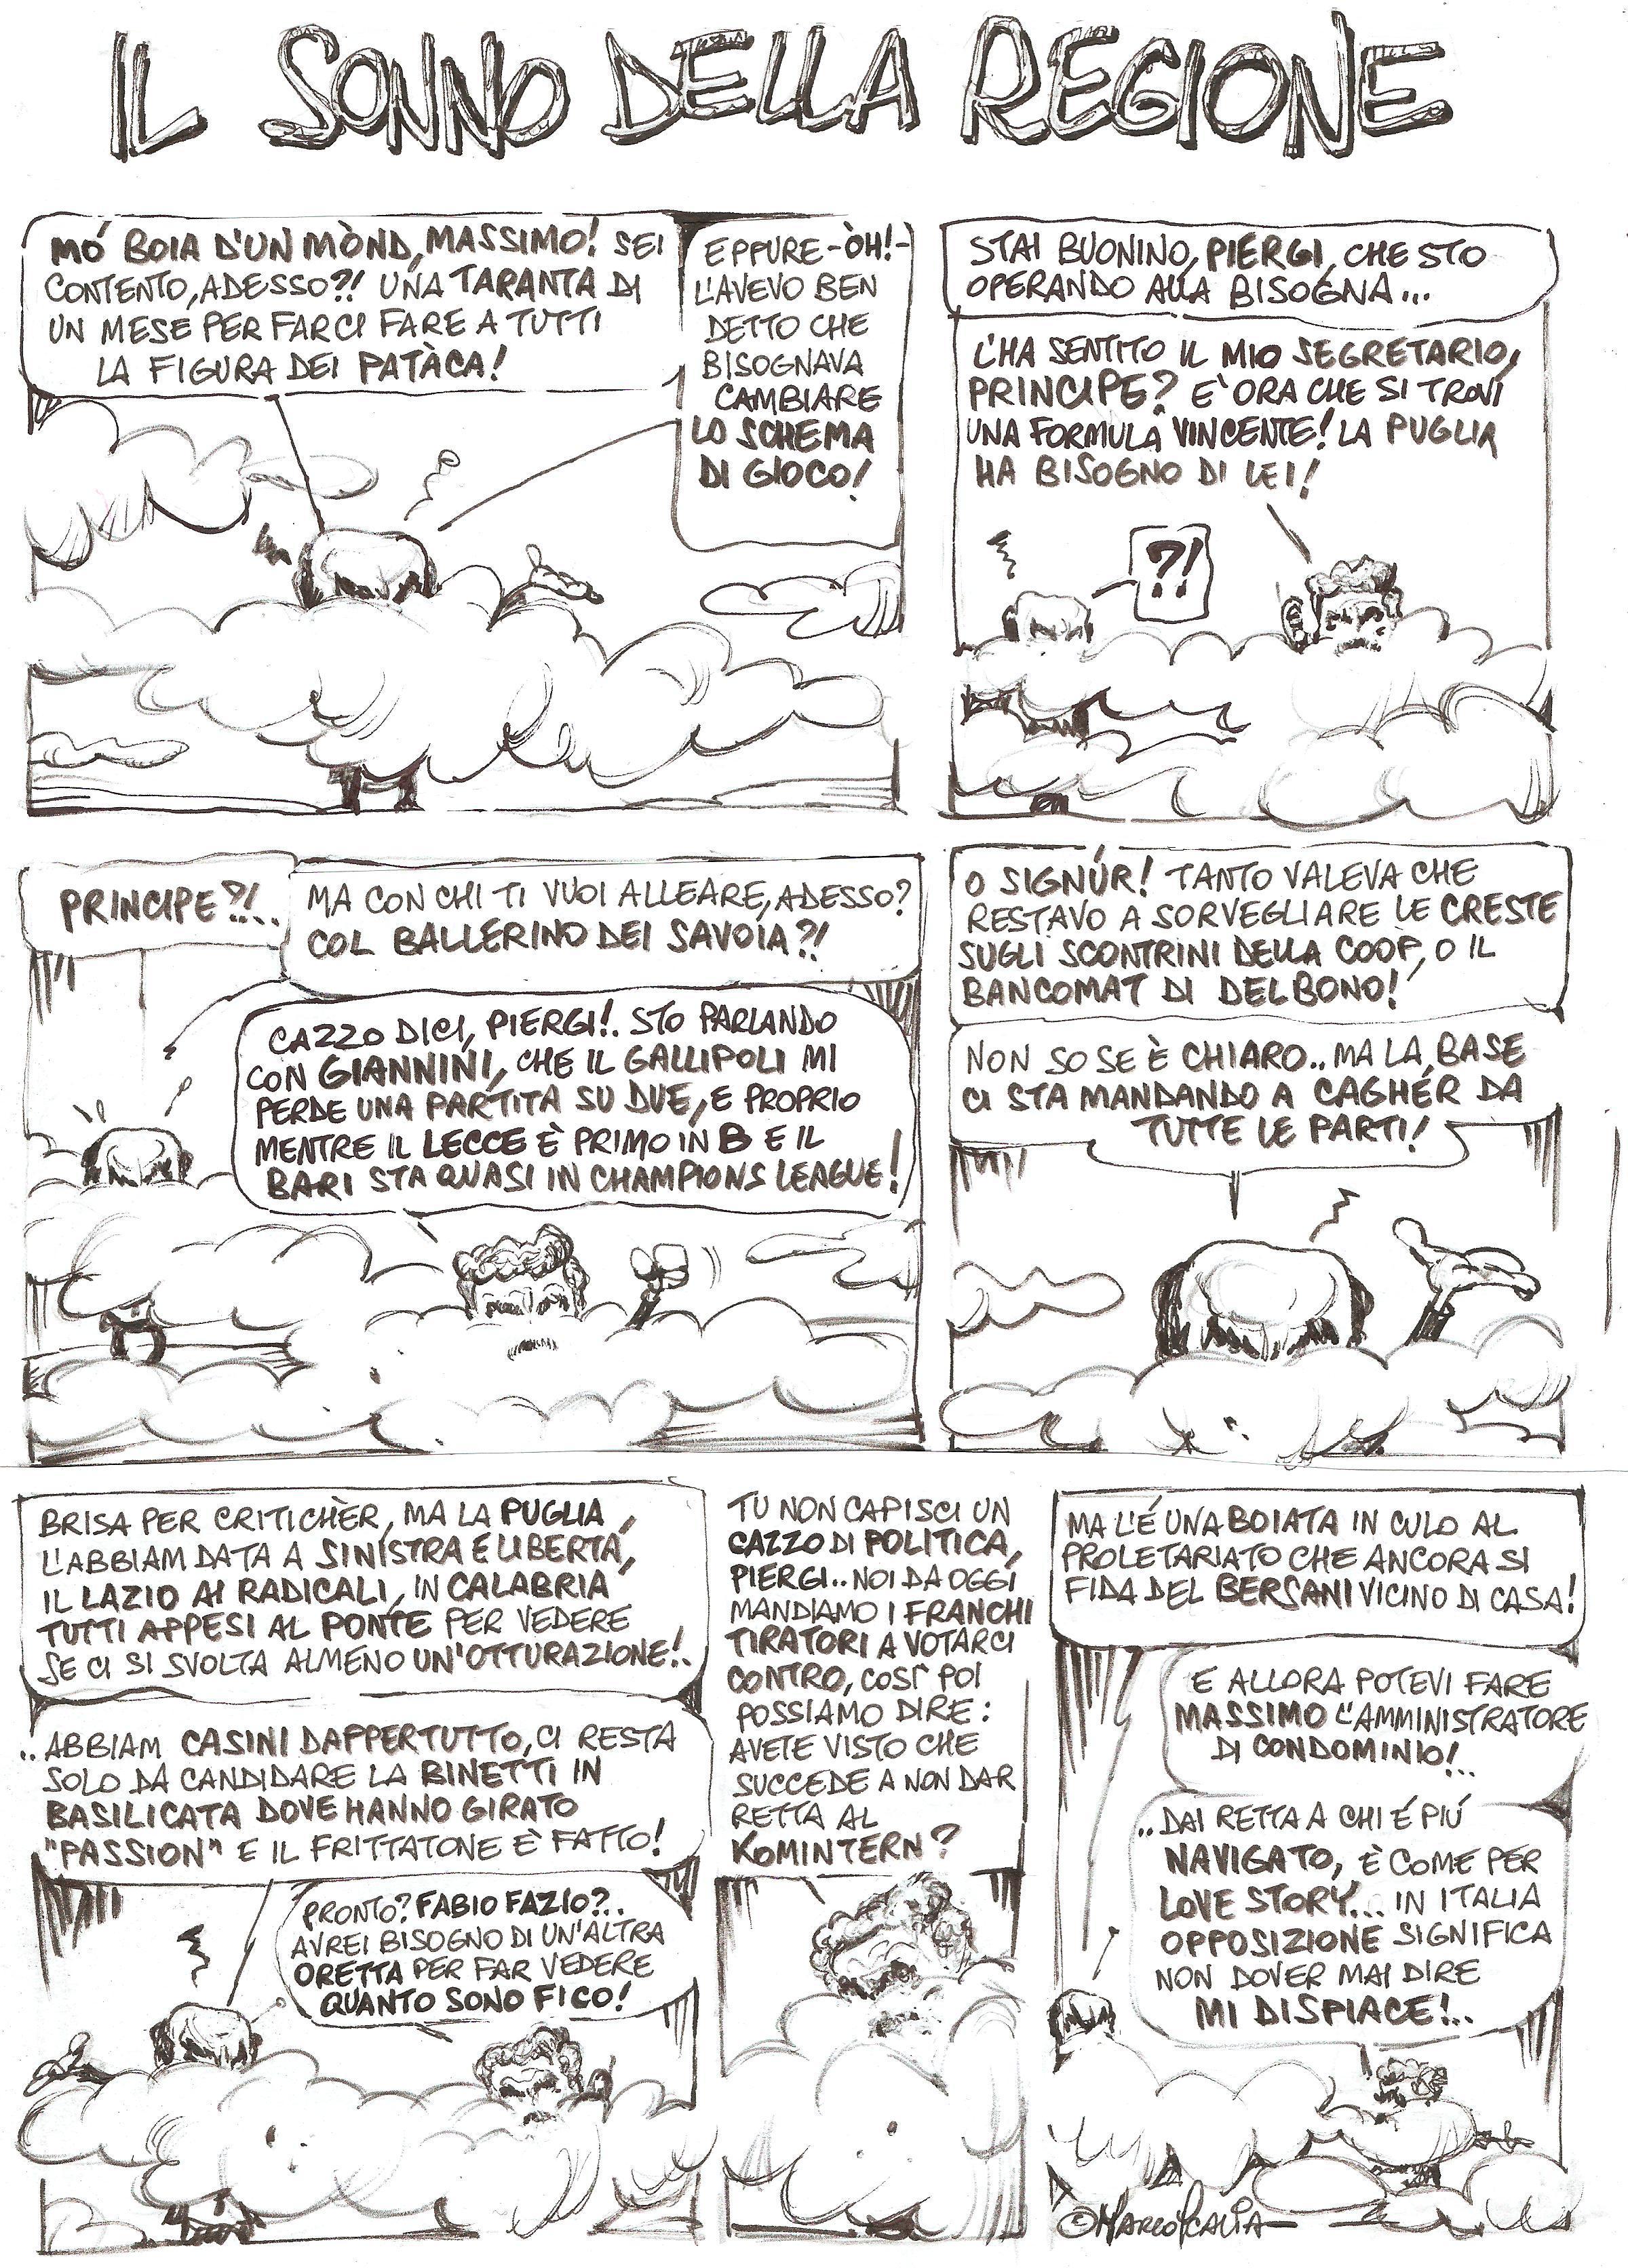 IL SONNO DELLA REGIONE
MÓ BOIA D'UN MÒND, MASSIMO! SEI
CONTENTO, ADESSO?! UNA TARANTA DI
UN MESE PER FARCI FARE A TUTTI
LA FIGURA DEI PATÀCA!
EPPURE - ÒH! -
L'AVEVO BEN
DETTO CHE
BISOGNAVA
CAMBIARE
LO SCHEMA
DI GIOCO!
STAI BUONINO, PIERGI, CHE STO
OPERANDO ALLA BISOGNA...
L'HA SENTITO IL MIO SEGRETARIO,
PRINCIPE? E' ORA CHE SI TROVI
UNA FORMULA VINCENTE! LA PUGLIA
HA BISOGNO DI LEI!
?!
PRINCIPE?!..
MA CON CHI TI VUOI ALLEARE, ADESSO?
COL BALLERINO DEI SAVOIA?!
CAZZO DICI, PIERGI!. STO PARLANDO
CON GIANNINI, CHE IL GALLIPOLI MI
PERDE UNA PARTITA SU DUE, E PROPRIO
MENTRE IL LECCE È PRIMO IN B E IL
BARI STA QUASI IN CHAMPIONS LEAGUE!
O SIGNÚR! TANTO VALEVA CHE
RESTAVO A SORVEGLIARE LE CRESTE
SUGLI SCONTRINI DELLA COOP, O IL
BANCOMAT DI DELBONO!
NON SO SE È CHIARO.. MA LA BASE
CI STA MANDANDO A CAGHÉR DA
TUTTE LE PARTI!
BRISA PER CRITICHÈR, MA LA PUGLIA
L'ABBIAM DATA A SINISTRA E LIBERTÀ,
IL LAZIO AI RADICALI, IN CALABRIA
TUTTI APPESI AL PONTE PER VEDERE
SE CI SI SVOLTA ALMENO UN'OTTURAZIONE!..
..ABBIAM CASINI DAPPERTUTTO, CI RESTA
SOLO DA CANDIDARE LA BINETTI IN
BASILICATA DOVE HANNO GIRATO
"PASSION" E IL FRITTATONE È FATTO!
PRONTO? FABIO FAZIO?..
AVREI BISOGNO DI UN'ALTRA
ORETTA PER FAR VEDERE
QUANTO SONO FICO!
TU NON CAPISCI UN
CAZZO DI POLITICA,
PIERGI.. NOI DA OGGI
MANDIAMO I FRANCHI
TIRATORI A VOTARCI
CONTRO, COSÌ POI
POSSIAMO DIRE:
AVETE VISTO CHE
SUCCEDE A NON DAR
RETTA AL
KOMINTERN?
MA L'É UNA BOIATA IN CULO AL
PROLETARIATO CHE ANCORA SI
FIDA DEL BERSANI VICINO DI CASA!
E ALLORA POTEVI FARE
MASSIMO L'AMMINISTRATORE
DI CONDOMINIO!..
..DAI RETTA A CHI É PIÚ
NAVIGATO, È COME PER
LOVE STORY... IN ITALIA
OPPOSIZIONE SIGNIFICA
NON DOVER MAI DIRE
MI DISPIACE!..
© MARCO SCALIA